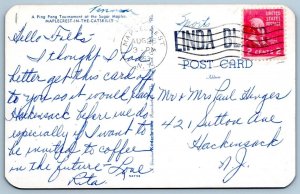 A Ping Pong Tournament at the Sugar Maples
MAPLECREST-IN-THE-CATSKILLS
Hello Folks:
I thought I had
better get this card off
to you so it would reach
Hackensack before we do
especially if I want to
be invited to coffee
in the future - Love
Rita.
POST CARD
UNITED STATES
2 CENTS 2
Mr & Mrs Paul Hinges
421 Sutton Ave
Hackensack
N.J.